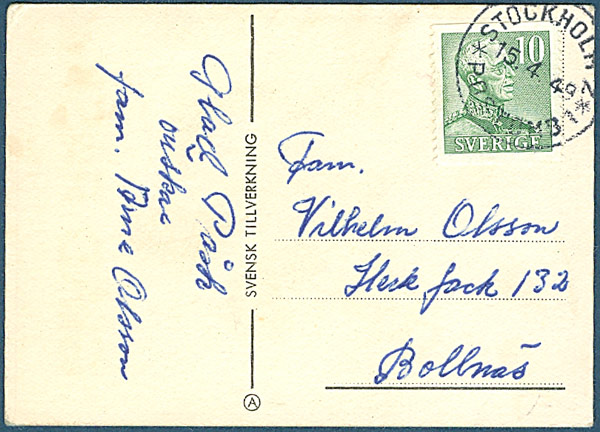 Glad Påsk
önskar
fam. Arne Olsson
SVENSK TILLVERKNING
A
10
SVERIGE
STOCKHOLM
15 4 49
Fam.
Vilhelm Olsson
fack 132
Bollnäs